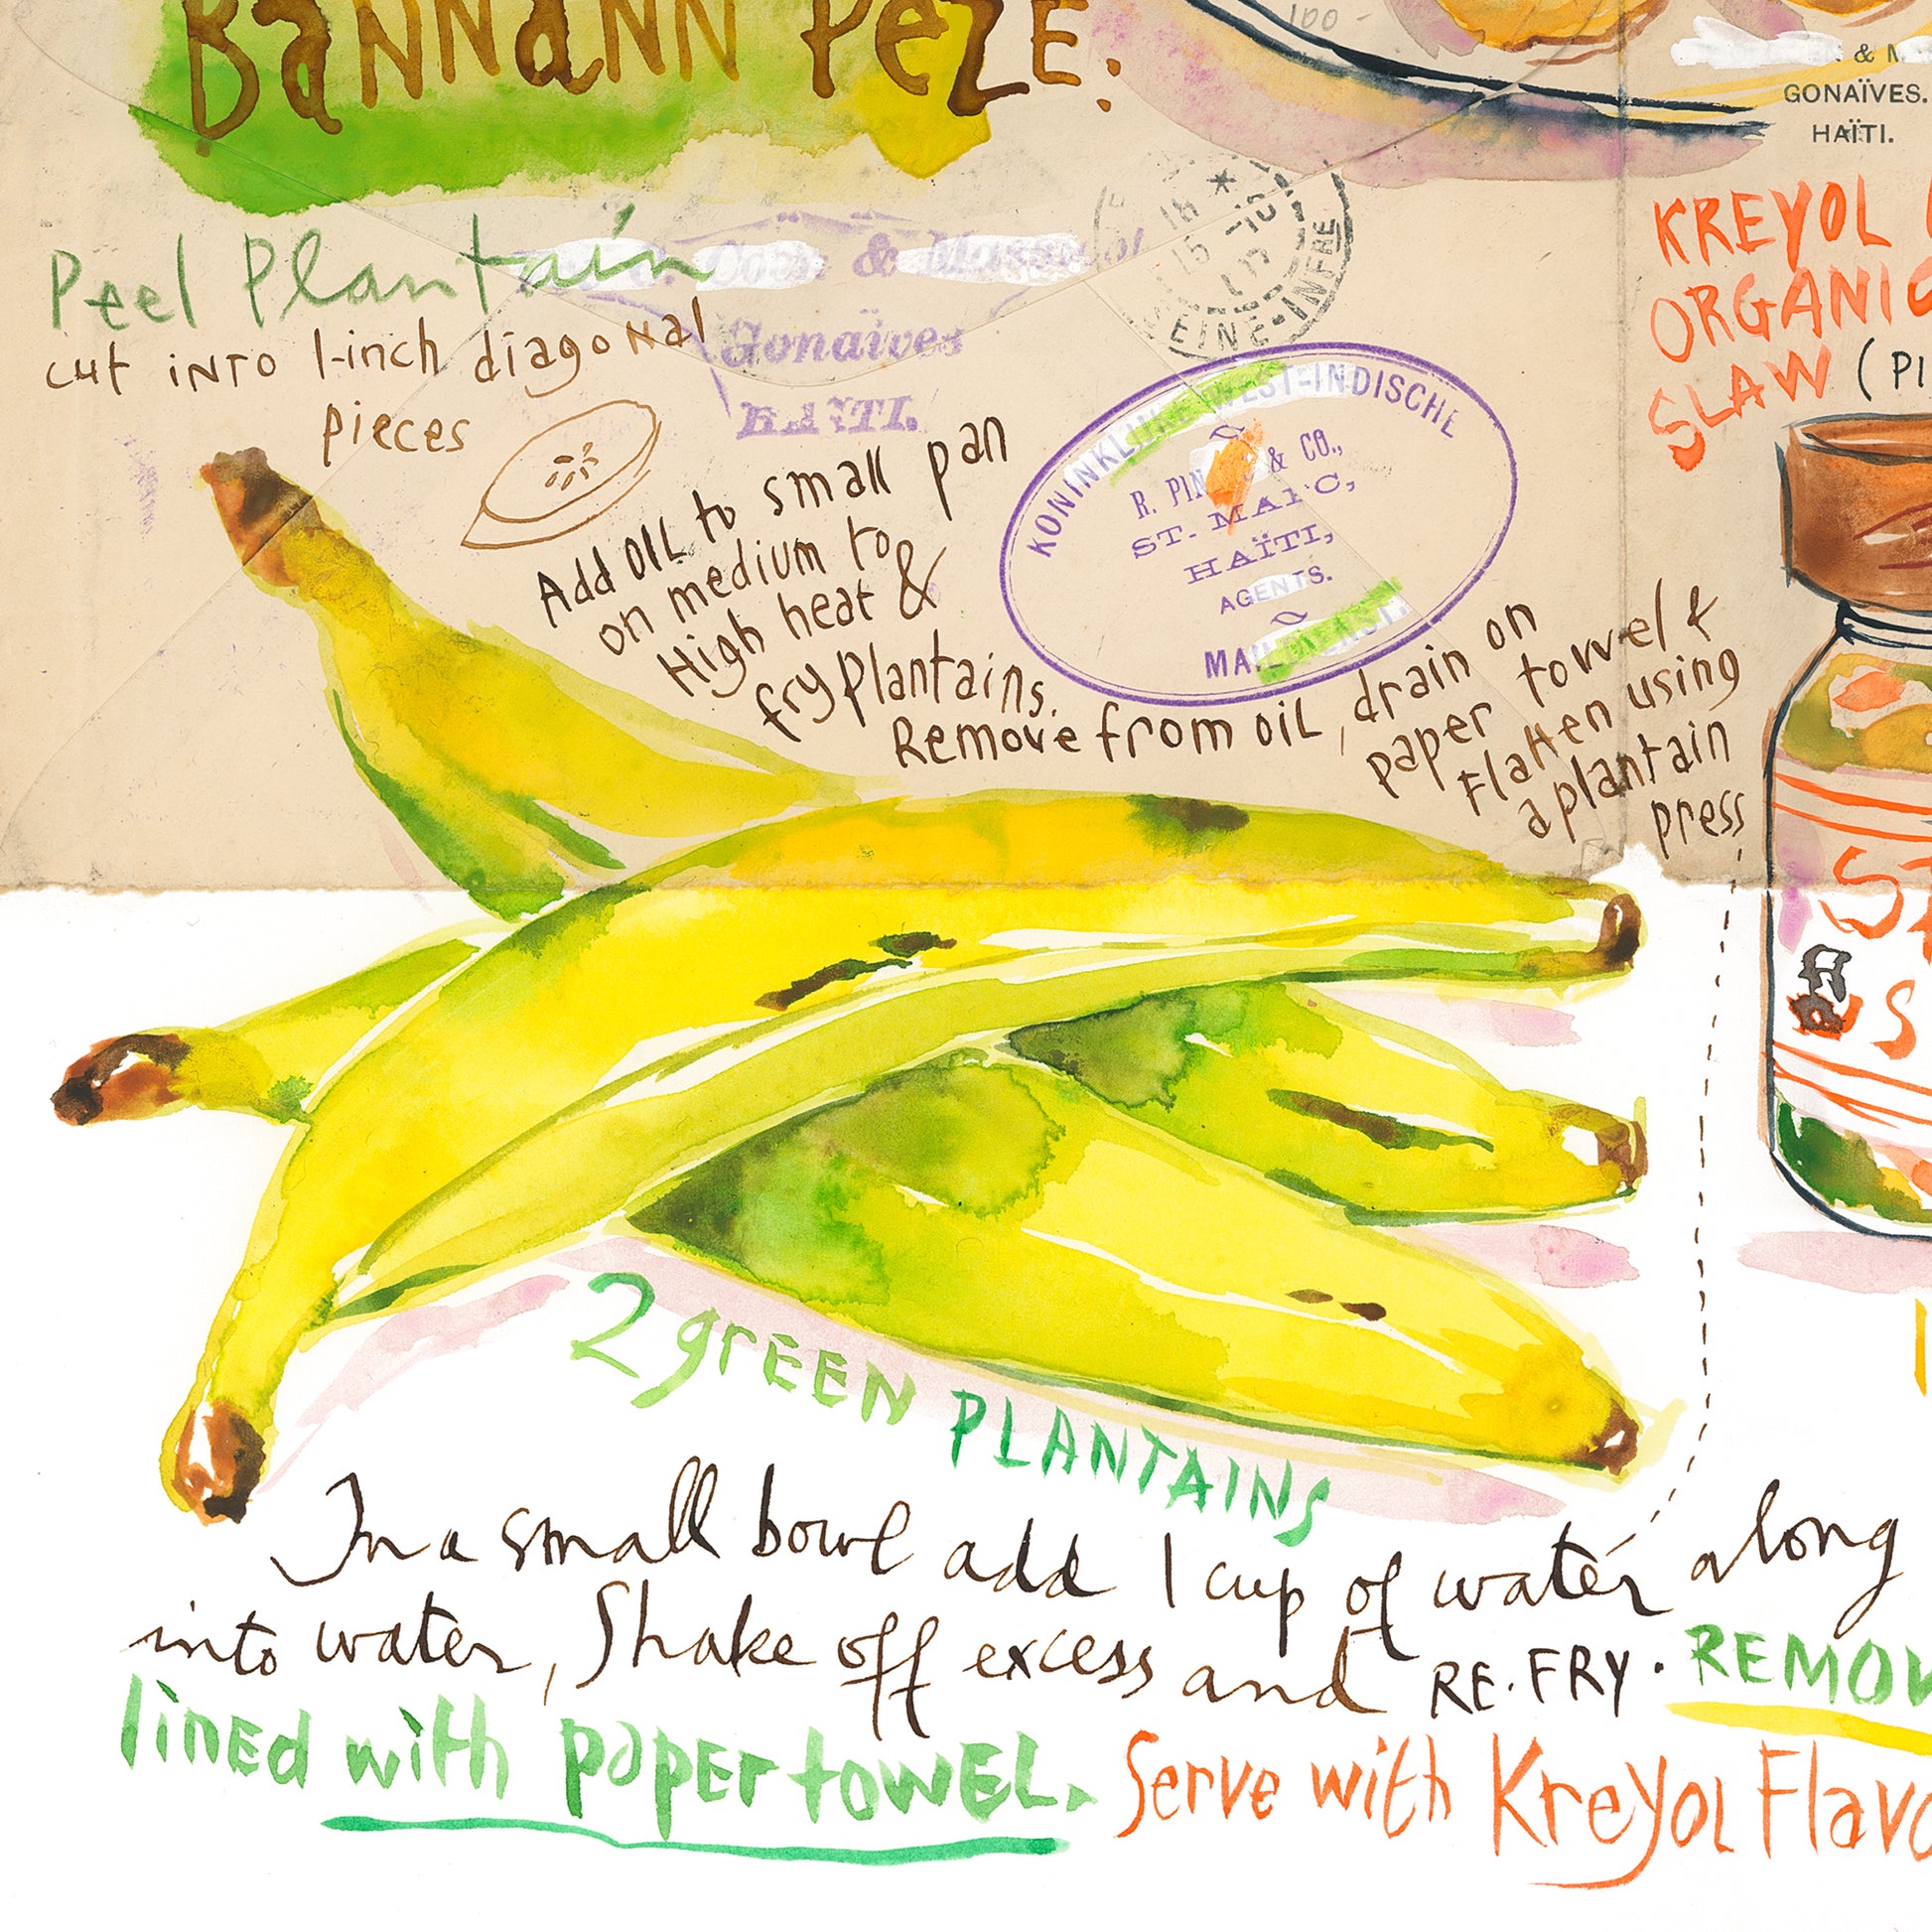 BaNNaNN PeZE.
100-
& M
GONAÏVES.
HAÏTI.
Peel Plantain
cut iNTO 1-inch diagonal
pieces
&
Gonaïves
HAÏTI.
18
15
SEINE-INFRE
KONINKLIJKE WEST-INDISCHE
R. PIN & CO.,
ST. MARC,
HAÏTI,
AGENTS.
MAIL
KREYOL
ORGANIC
SLAW (PI
Add OIL to small pan
on medium to
High heat &
fry Plantains.
Remove from oil, drain on
paper towel &
flatten using
a plantain
press
S
S
2 grEEN PLANTAINS
In a small bowl add 1 cup of water along
into water, Shake off excess and RE.FRY. REMOV
linEd with papEr towEL. Serve with Kreyol Flavo